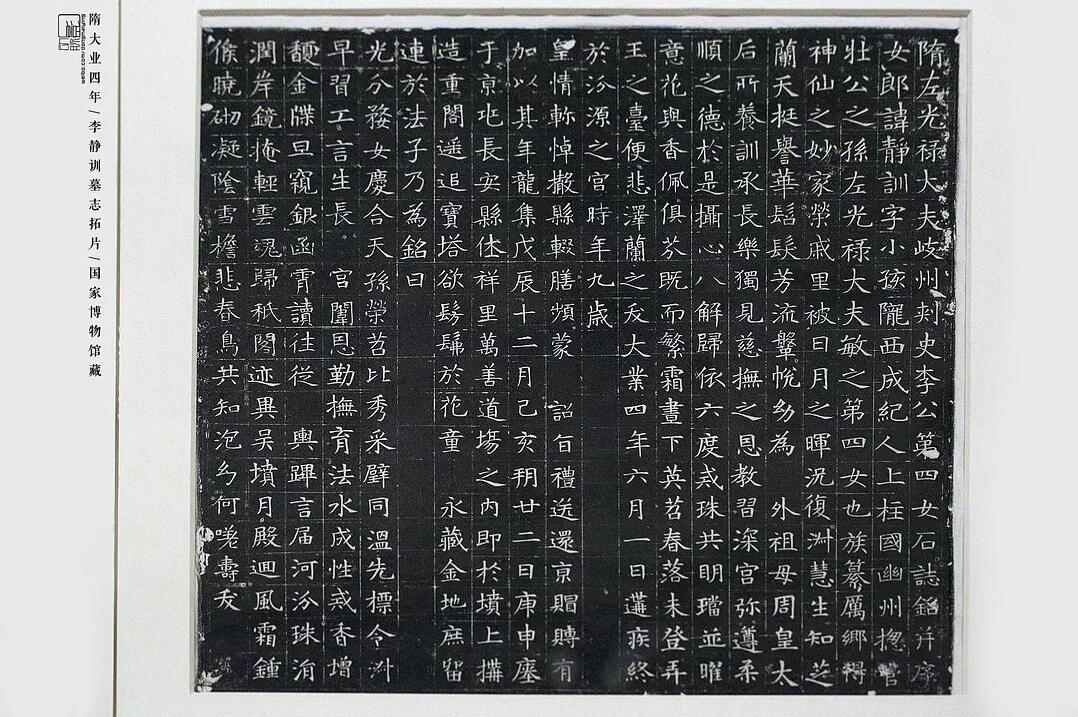 隋左光禄大夫歧州刾史李公第四女石誌銘并序
女郎諱靜訓字小孩隴西成紀人上柱國幽州揔管
壮公之孫左光禄大夫敏之第四女也族纂厲鄉得
神仙之妙家榮戚里被日月之暉況復淑慧生知芝
蘭天挺譽華髫髮芳流鞶帨幼為 外祖母周皇太
后所養訓承長樂獨見慈撫之恩教習深宮弥遵柔
順之德於是攝心八解歸依六度戒珠共明璫並曜
意花與香佩俱芬既而繁霜晝下英苕春落未登弄
玉之臺便悲澤蘭之夭大業四年六月一日遘疾終
於汾源之宮時年九歳
皇情軫悼撤縣輟膳頻蒙 詔旨禮送還京賵賻有
加以其年龍集戊辰十二月己亥朔廿二日庚申塟
于京兆長安縣休祥里萬善道塲之内即於墳上搆
造重閣遥追寶塔欲髣髴於花童 永藏金地庶留
連於法子乃為銘曰
光分婺女慶合天孫榮苕比秀采璧同溫先標令淑
早習工言生長 宮闈恩勤撫育法水成性戒香增
馥金牒旦窺銀函霄讀往從 輿蹕言届河汾珠涓
潤岸鏡掩輕雲魂歸秪閣迹異吴墳月殿迴風霜鍾
候曉砌凝隂雪檐悲春鳥共知泡幻何嗟壽夭
隋大业四年/李静训墓志拓片/国家博物馆藏